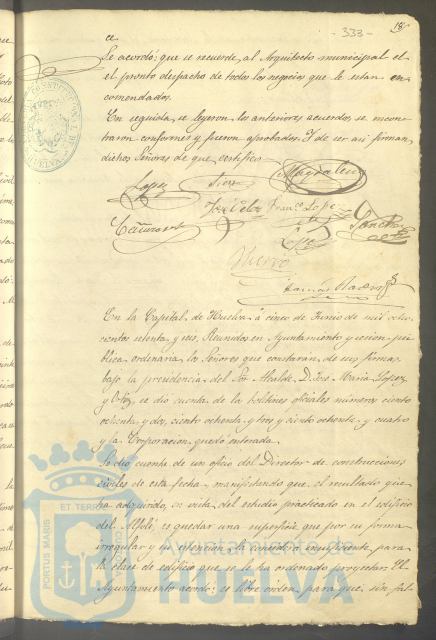 - 333 -
Se acordó: que se recuerde, al Arquitecto municipal el
el pronto despacho de todos los negocios que le estan en-
comendados.
En seguida, se leyeron los anteriores acuerdos, se encon-
traron conformes y fueron aprobados. Y de ser asi firman,
dichos Señores de que certifico
Lopez
Franco Lopez
Sanchez
Lopez
Hierro
En la Capital de Huelva á cinco de Junio de mil ocho-
cientos setenta y seis, Reunidos en Ayuntamiento y sesion pú-
blica ordinaria, los Señores que constarán, de sus firmas
bajo la presidencia del Sor. Alcalde, D. Jose Maria Lopez
y se dió cuenta de los boletines oficiales números ciento
ochenta y dos, ciento ochenta y tres y ciento ochenta y cuatro
y la Corporacion quedó enterada.
Se dió cuenta de un oficio del Director de construcciones
civiles de esta fecha, manifestando que, el resultado que
ha adquirido, en vista del estudio practicado en el edificio
del es quedar una superficie que por su forma
irregular y su estencion, la considera insuficiente, para
la clase de edificio que se le ha ordenado proyectar. El
Ayuntamiento acordó: se libre orden, para que, sin fal-
PORTUS MARIS
ET TERRAE
CUSTODIA
Ayuntamiento de
HUELVA